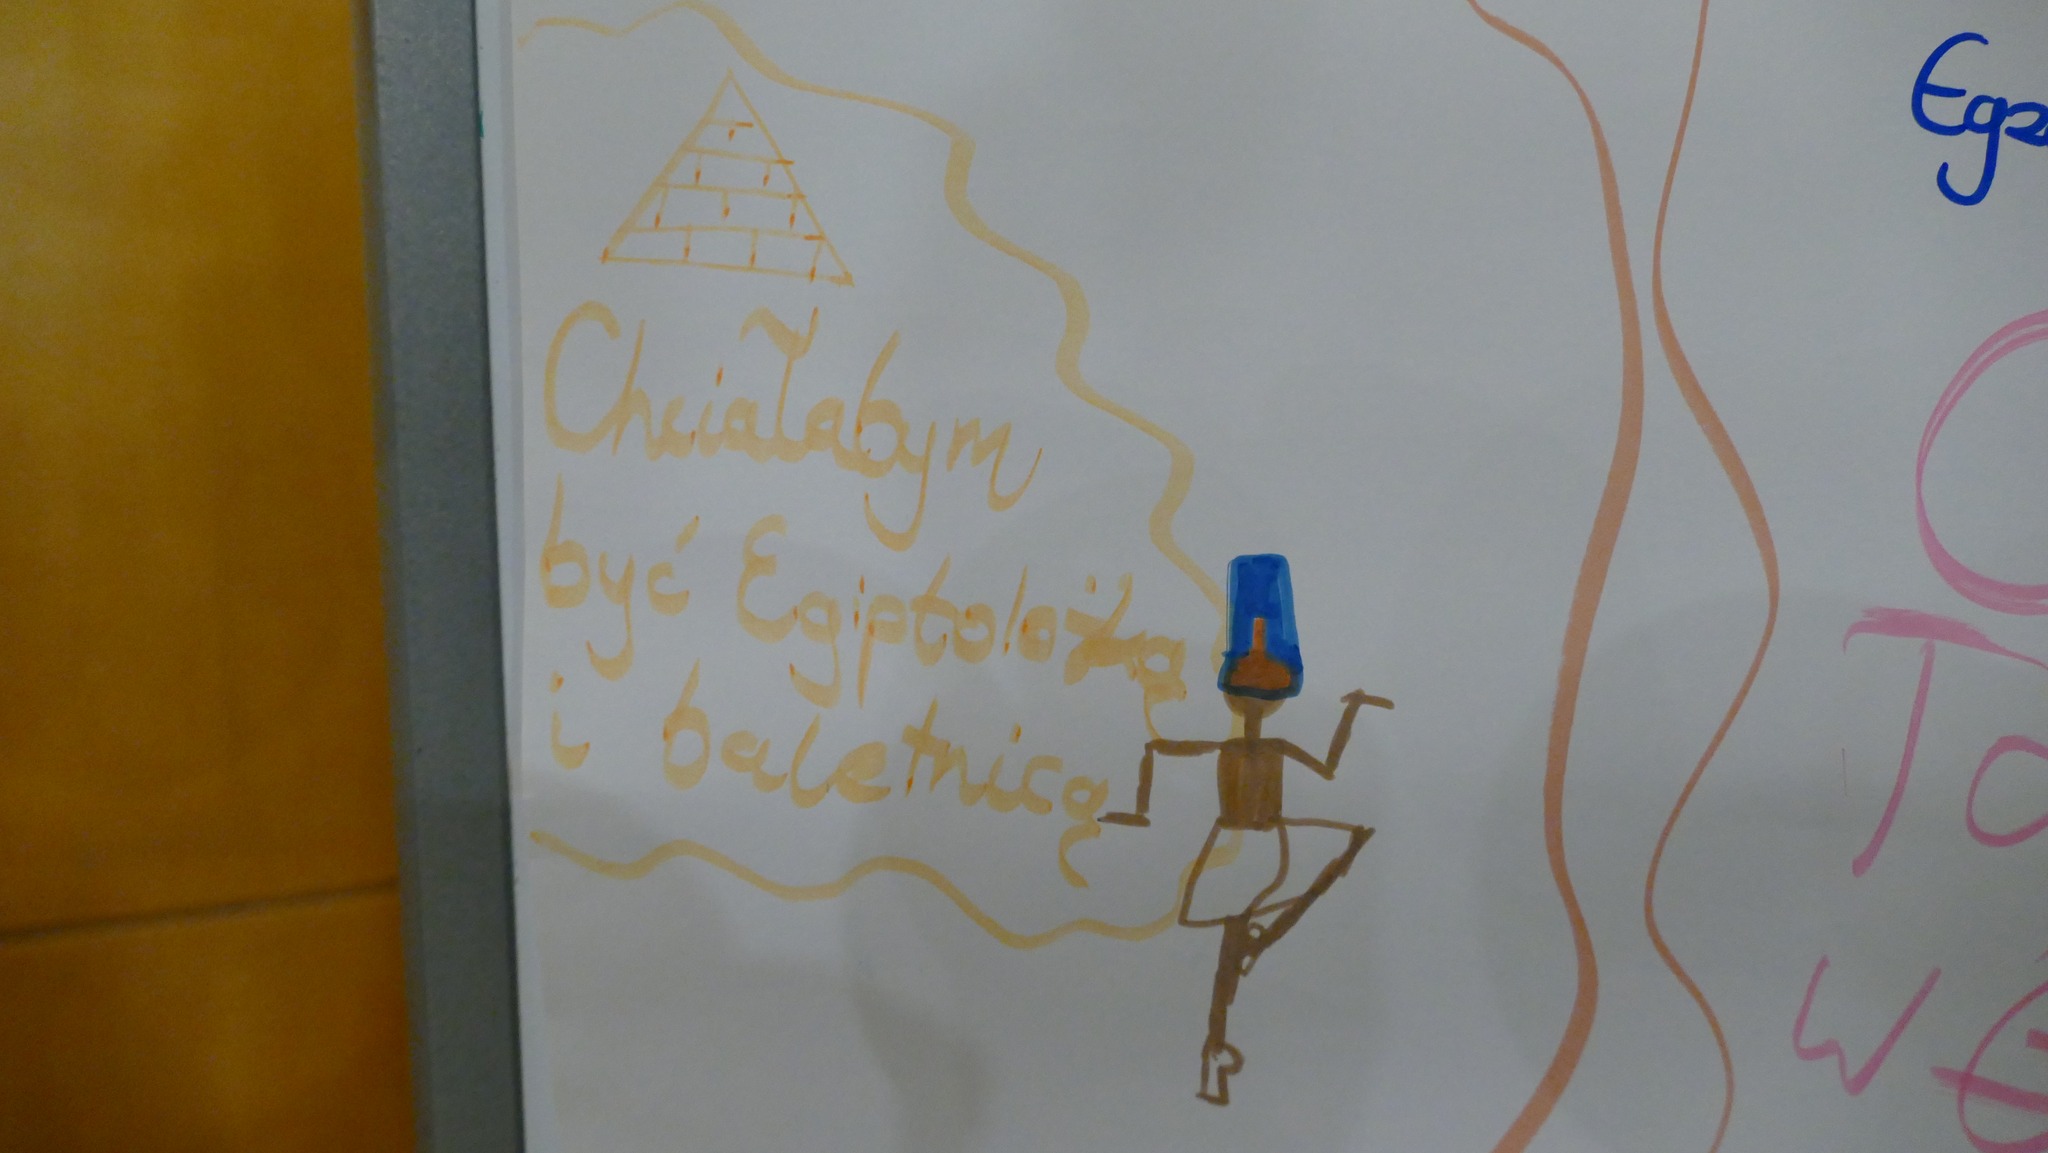 Chciałabym
być Egiptolożką
i baletnicą
Egz
To
W